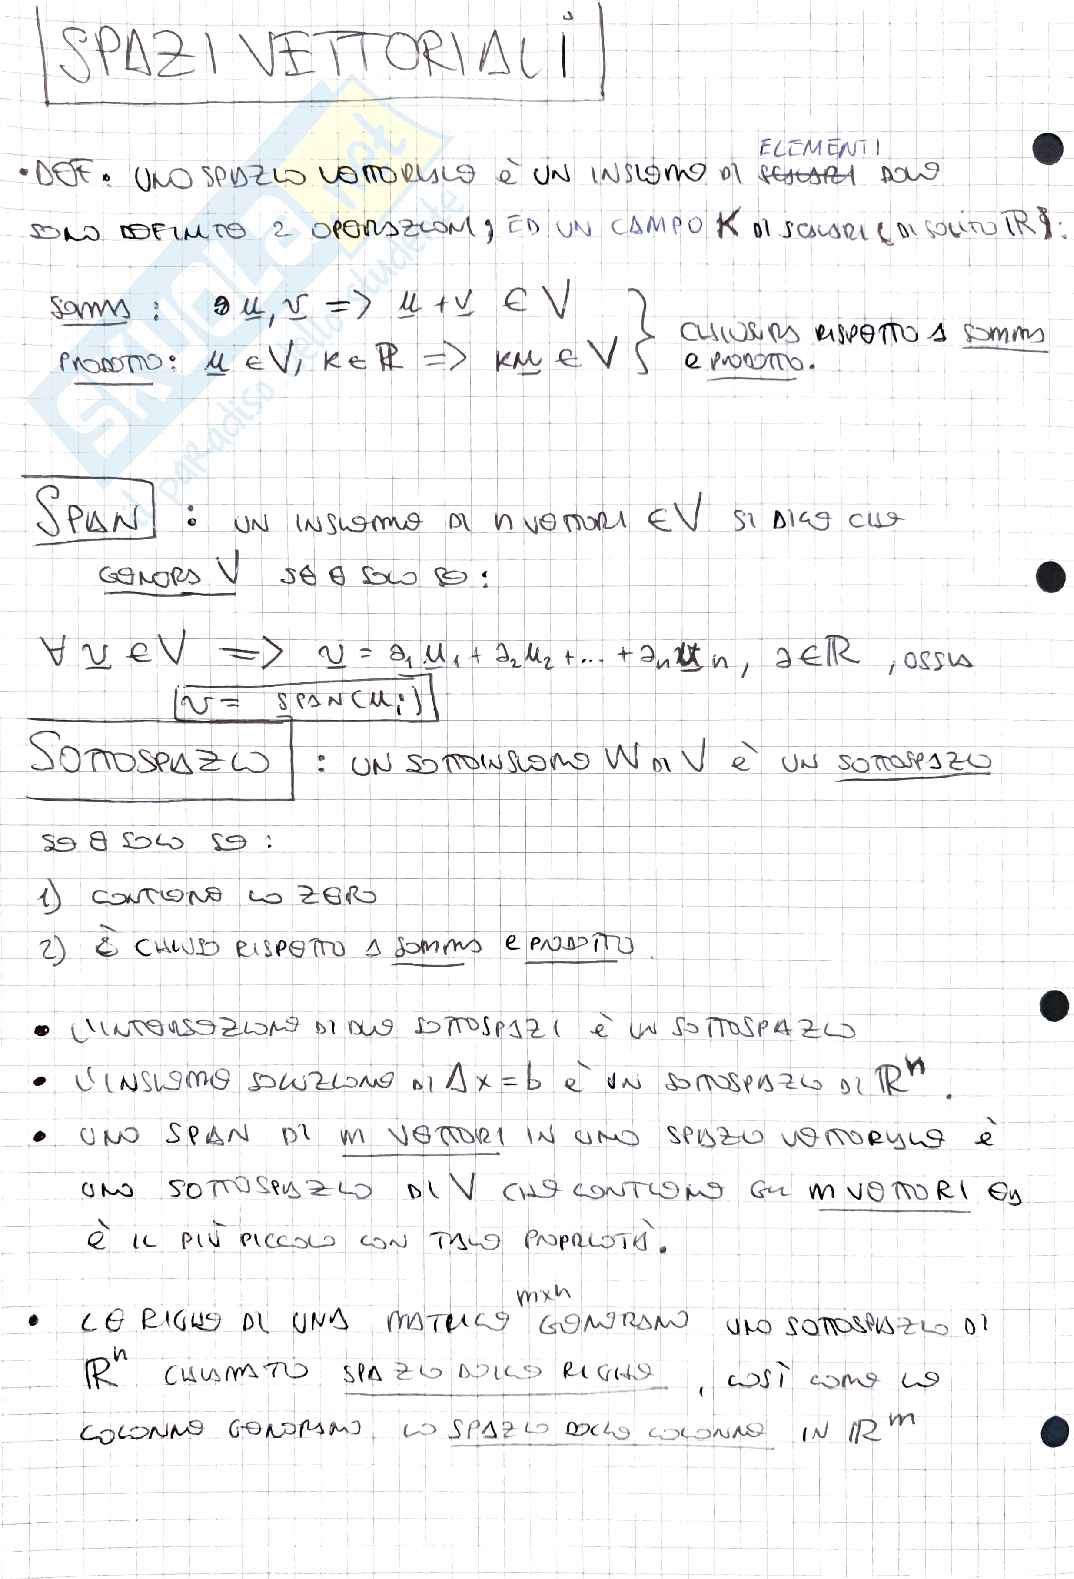 SPAZI VETTORIALI
• DEF: UNO SPAZIO VETTORIALE È UN INSIEME DI SCALARI ELEMENTI DOVE
SONO DEFINITE 2 OPERAZIONI, ED UN CAMPO K DI SCALARI (DI SOLITO ℝ):
SOMMA: u, v => u + v ∈ V
PRODOTTO: u ∈ V, K ∈ ℝ => Ku ∈ V
} CHIUSURA RISPETTO A SOMMA
E PRODOTTO.
SPAN : UN INSIEME DI n VETTORI ∈ V SI DICE CHE
GENERA V SE E SOLO SE:
∀ v ∈ V => v = a₁u₁ + a₂u₂ + ... + aₙuₙ, a ∈ ℝ, OSSIA
v = SPAN(uᵢ)
SOTTOSPAZIO : UN SOTTOINSIEME W DI V È UN SOTTOSPAZIO
SE E SOLO SE:
1) CONTIENE LO ZERO
2) È CHIUSO RISPETTO A SOMMA E PRODOTTO.
• L'INTERSEZIONE DI DUE SOTTOSPAZI È UN SOTTOSPAZIO
• L'INSIEME SOLUZIONE DI Ax = b È UN SOTTOSPAZIO DI ℝⁿ.
• UNO SPAN DI m VETTORI IN UNO SPAZIO VETTORIALE È
UNO SOTTOSPAZIO DI V CHE CONTIENE GLI m VETTORI ED
È IL PIÙ PICCOLO CON TALE PROPRIETÀ.
• LE RIGHE DI UNA MATRICE mxn GENERANO UNO SOTTOSPAZIO DI
ℝⁿ CHIAMATO SPAZIO DELLE RIGHE, COSÌ COME LE
COLONNE GENERANO LO SPAZIO DELLE COLONNE IN ℝᵐ
SKUOLA.not
il paradiso dello studente